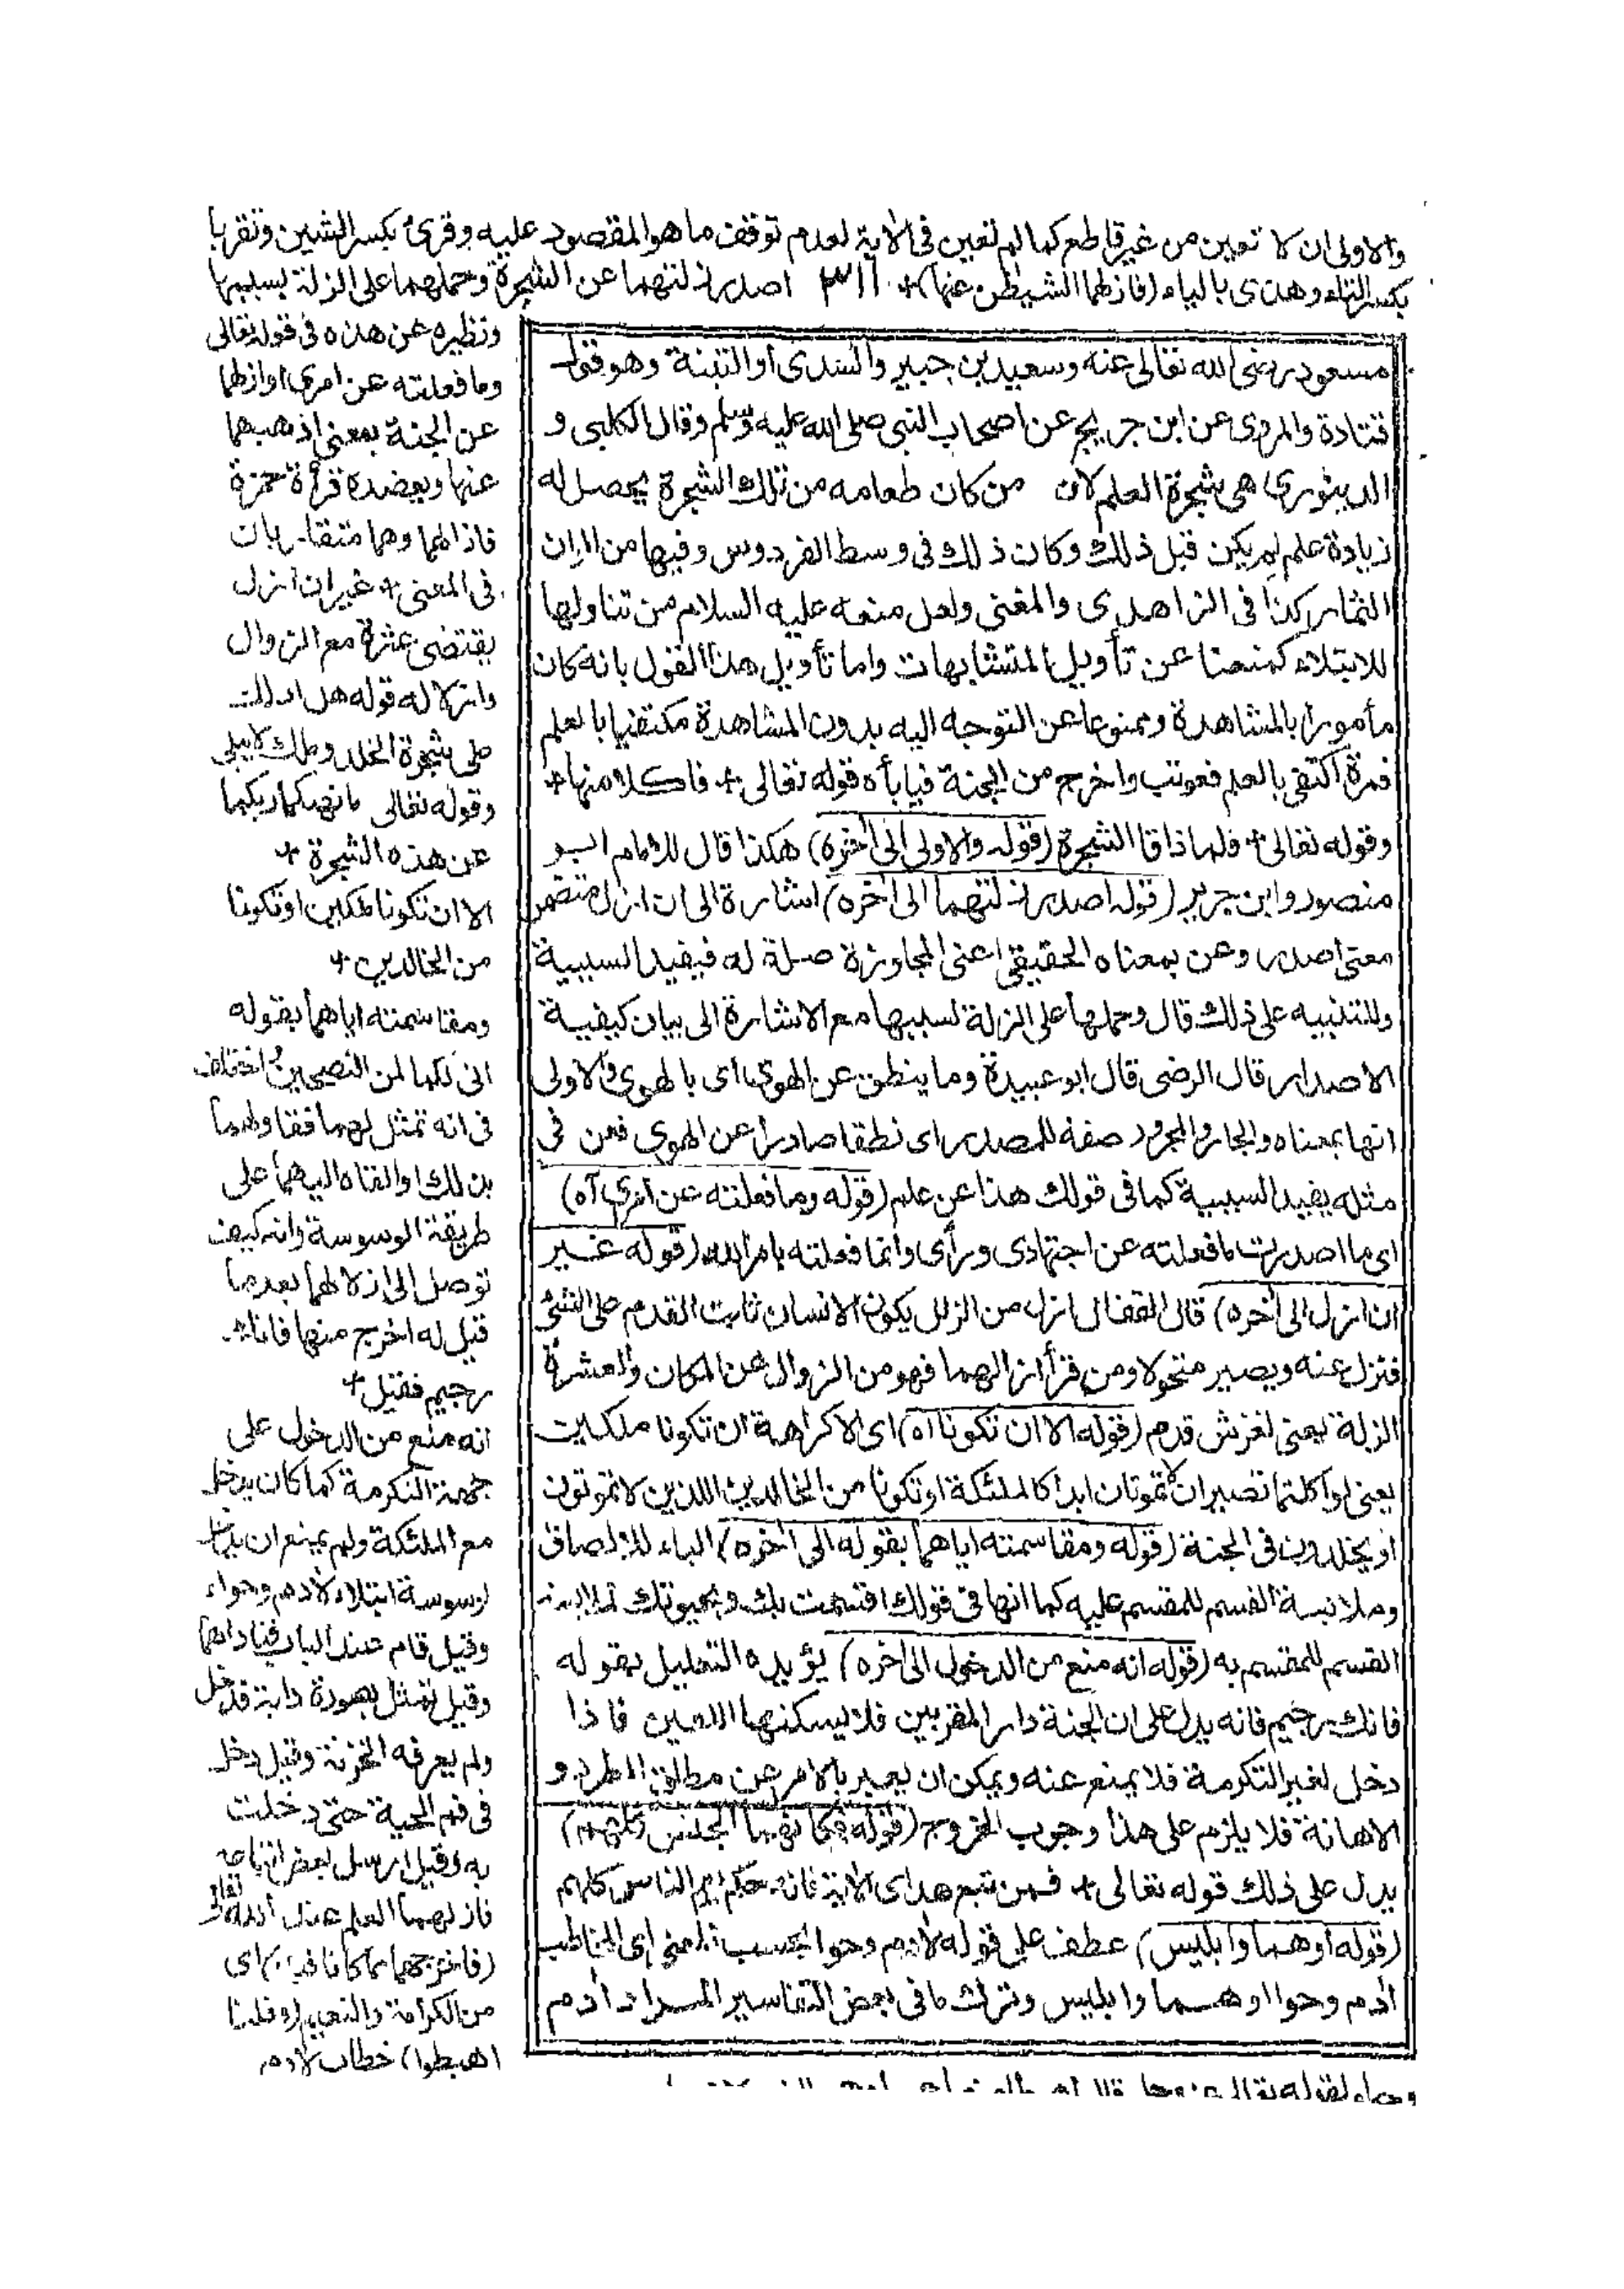 والاولى ان لا تعين من غير قاطع كما لم تعين فى الاية لعدم توقف ما هو المقصود عليه وقرئ بكسر الشين وتقربا
بكسر التاء وهذى بالياء (فازلهما الشيطن عنها)+ اصدر زلتهما عن الشجرة وحملهما على الزلة بسببها
ونظيره عن هذه فى قوله تعالى
وما فعلته عن امرى او ازلهما
عن الجنة بمعنى اذهبهما
عنها ويعضده قرأة حمزة
فازالهما وهما متقاربان
فى المعنى + غير ان ازل
يقتضى عثرة مع الزوال
وازلاله قوله هل ادلك
على شجرة الخلد وملك لايبلى
وقوله تعالى مانهىكما ربكما
عن هذه الشجرة +
الا ان تكونا ملكين او تكونا
من الخالدين +
ومقاسمته اياهما بقوله
انى لكما لمن النصحين واختلف
فى انه تمثل لهما فقاولهما
بذلك او القاه اليهما على
طريقة الوسوسة وانه كيف
توصل الى ازلالهما بعد ما
قيل له اخرج منها فانك
رجيم فقيل +
انه منع من الدخول على
جهة التكرمة كما كان يدخل
مع الملئكة ولم يمنع ان يدخل
لوسوسة ابتلاء لأدم وحواء
وقيل قام عند الباب فناداهما
وقيل تمثل بصورة دابة فدخل
ولم يعرفه الخزنة وقيل دخل
فى فم الحية حتى دخلت
به وقيل ارسل بعض اتباعه
فازلهما العلم عند الله تعالى
(فاخرجهما مما كانا فيه) اى
من الكرامة والنعيم (وقلنا
اهبطوا) خطاب لأدم
مسعود رضى الله تعالى عنه وسعيد بن جبير والسدى أو التينة وهو قول
قتادة والمروى عن ابن جريج عن اصحاب النبى صلى الله عليه وسلم وقال الكلبى و
الدينورى هى شجرة العلم لان من كان طعامه من تلك الشجرة يحصل له
زيادة علم لم يكن قبل ذلك وكان ذلك فى وسط الفردوس وفيها من الوان
الثمار كذا فى الزاهدى والمغنى ولعل منعه عليه السلام من تناولها
للابتلاء كمنعنا عن تأويل المتشابهات واما تأويل هذا القول بانه كان
مأمورا بالمشاهدة وممنوعا عن التوجه اليه بدون المشاهدة مكتفيا بالعلم
فمرة اكتفى بالعلم فعوتب واخرج من الجنة فيأباه قوله تعالى + فاكلا منها +
وقوله تعالى + فلما ذاقا الشجرة (قوله والاولى الى أخره) هكذا قال الامام ابو
منصور وابن جرير (قوله اصدر زلتهما الى أخره) اشارة الى ان ازل متضمن
معنى اصدر وعن بمعناه الحقيقى اعنى المجاوزة صلة له فيفيد السببية
وللتنبيه على ذلك قال وحملها على الزلة بسببها مع الاشارة الى بيان كيفية
الاصدار قال الرضى قال ابو عبيدة وما ينطق عن الهوى اى بالهوى والاولى
انها بمعناه والجار والمجرور صفة للمصدر اى نطقا صادرا عن الهوى فعن فى
مثله يفيد السببية كما فى قولك هذا عن علم (قوله وما فعلته عن امرى آه)
اى ما اصدرت مافعلته عن اجتهادى ورأى وانما فعلته بامر الله (قوله غير
ان ازل الى أخره) قال القفال ازل من الزلل يكون الانسان ثابت القدم على الشئ
فتزل عنه ويصير متحولا ومن قرأ ازالهما فهو من الزوال عن المكان والعشرة
الزلة يعنى لغزش قدم (قوله الا ان تكونا اه) اى الا كراهة ان تكونا ملكين
يعنى لو اكلتما تصيران لاتموتان ابدا كالملئكة او تكونا من الخالدين اللذين لاتموتون
أو يخلدون فى الجنة (قوله ومقاسمته اياهما بقوله الى أخره) الباء للالصاق
وملابسة القسم للمقسم عليه كما انها فى قولك اقسمت بك وبحيوتك لملابسة
القسم للمقسم به (قوله انه منع من الدخول الى أخره) يؤيده التعليل بقوله
فانك رجيم فانه يدل على ان الجنة دار المقربين فلا يسكنها اللعين فاذا
دخل لغير التكرمة فلا يمنع عنه ويمكن ان يعبر بالامر عن مطلق الطرد و
الاهانة فلا يلزم على هذا وجوب الخروج (قوله فكانهما الجنس كلهم)
يدل على ذلك قوله تعالى + فمن تبع هداى الاية فانه حكم يعم الناس كلهم
(قوله أوهما وابليس) عطف على قوله لأدم وحوا بحسب المعنى اى المخاطب
أدم وحوا اوهما وابليس وترك ما فى بعض التفاسير المراد أدم